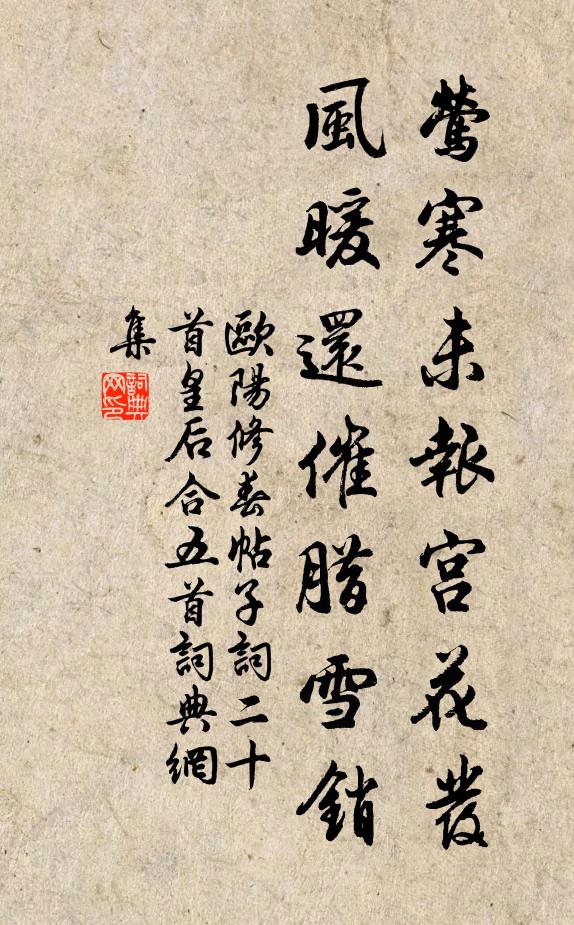 鶯寒未報宮花發
風暖還催腊雪銷
歐陽修春帖子詞二十
首皇后合五首詞典網
集
詞典
网印